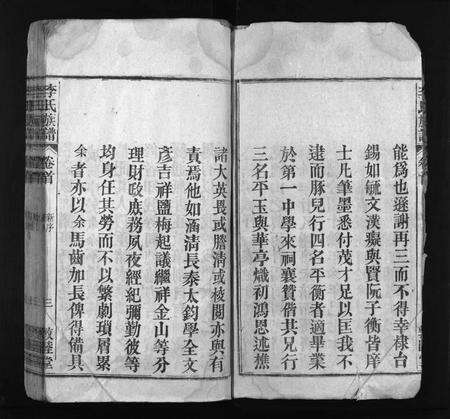 能爲也遜謝再三而不得幸棣台
錫如毓文漢癡與賢阮子衡皆庠
士凡筆墨悉付茂才足以匡我不
逮而豚兒行四名平衡者適畢業
於第一中學來祠襄贊偕其兄行
三名平玉與華亭熾初鴻恩述樵
諸大英畏或膳清或校閱亦與有
責焉他如涵清長泰太鈞學全文
彥吉祥鹽梅起議繼祥金山等分
理財政庶務夙夜經紀彌勤彼等
均身任其勞而不以繁劇瑣屑累
余者亦以余馬齒加長俾得備具
李氏族譜 卷首 新序 三 敦睦堂